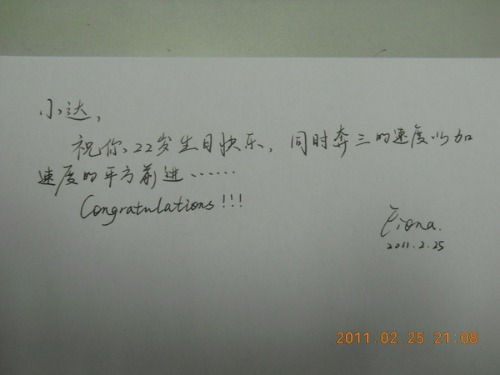 小达，
祝你22岁生日快乐，同时奔三的速度以加
速度的平方前进……
Congratulations!!!
Fiona.
2011.2.25
2011.02.25 21:08